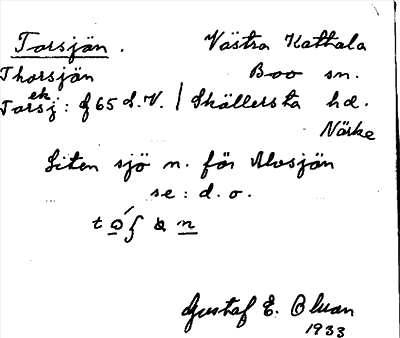 Torsjön. Västra Kattala
Thorsjön Boo sn.
ek
Torsj: f 65 S.V. / Skällersta hd.
Närke
Liten sjö n. för Alvsjön
se: d. o.
Gustaf E. Bluan
1933